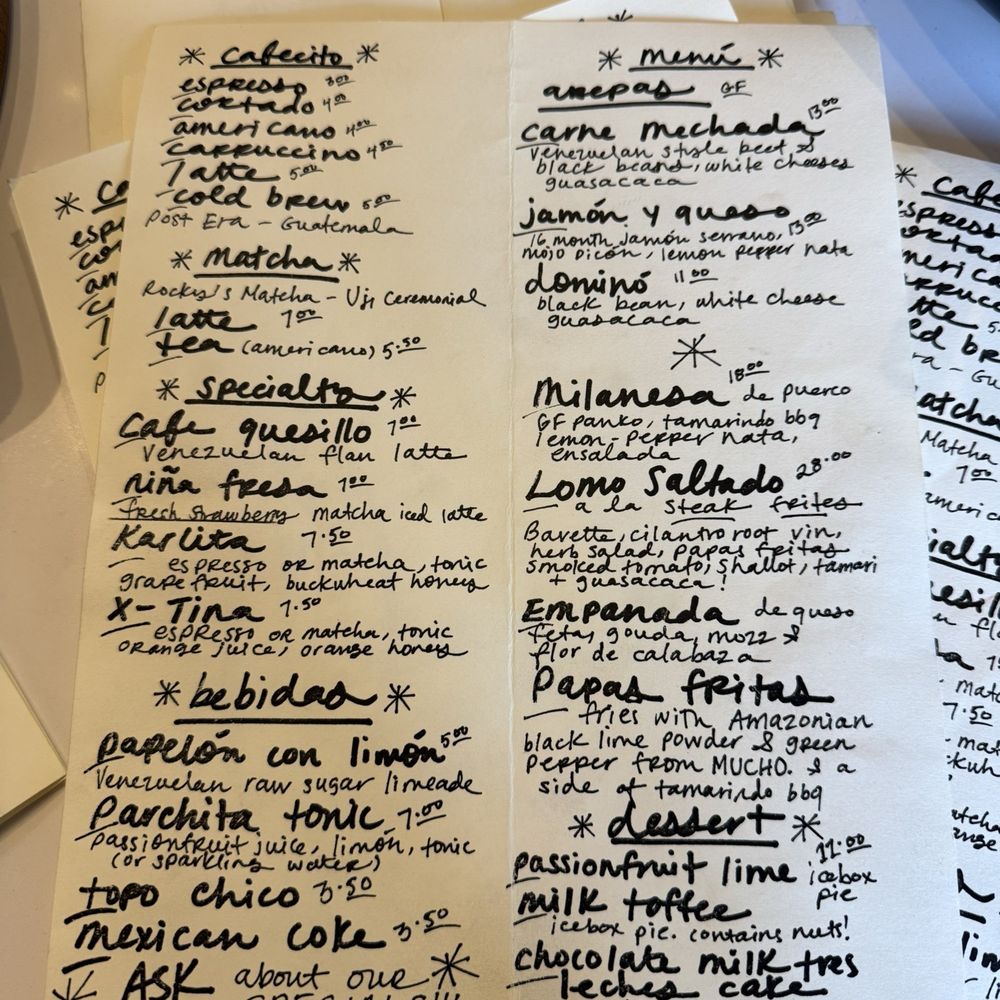 * cafecito *
espresso 3.00
cortado 4.00
americano 4.00
cappuccino 4.50
latte 5.00
cold brew 5.00
Post Era - Guatemala
* Matcha *
Rocky's Matcha - Uji Ceremonial
latte 7.00
tea (americano) 5.50
* Specialty *
Cafe quesillo 7.00
Venezuelan flan latte
niña fresa 7.00
fresh strawberry matcha iced latte
Karlita 7.50
espresso or matcha, tonic
grapefruit, buckwheat honey
X-Tina 7.50
espresso or matcha, tonic
orange juice, orange honey
* bebidas *
papelón con limón 5.00
Venezuelan raw sugar limeade
Parchita tonic 7.00
passionfruit juice, limón, tonic
(or sparkling water)
topo chico 3.50
mexican coke 3.50
ASK about our *
* menú *
arepas GF
carne mechada 13.00
Venezuelan style beef &
black beans, white cheese
guasacaca
jamón y queso 13.00
16 month jamón serrano,
mojo picón, lemon pepper nata
dominó 11.00
black bean, white cheese
guasacaca
*
Milanesa de puerco 18.00
GF panko, tamarindo bbq
lemon-pepper nata,
ensalada
Lomo Saltado 28.00
a la steak frites
Bavette, cilantro root vin,
herb salad, papas fritas
smoked tomato, shallot, tamari
+ guasacaca!
Empanada de queso
feta, gouda, mozz &
flor de calabaza
Papas fritas
fries with Amazonian
black lime powder & green
pepper from MUCHO. & a
side of tamarindo bbq
* dessert *
passionfruit lime icebox pie 12.00
milk toffee
icebox pie. contains nuts!
chocolate milk tres
leches cake